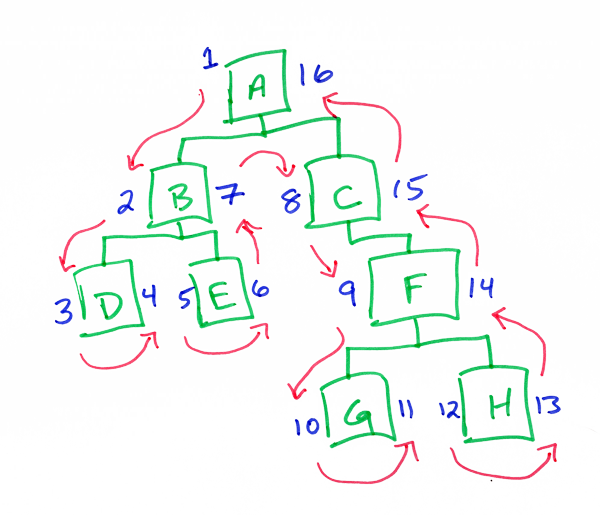 1 A 16
2 B 7 8 C 15
3 D 4 5 E 6 9 F 14
10 G 11 12 H 13